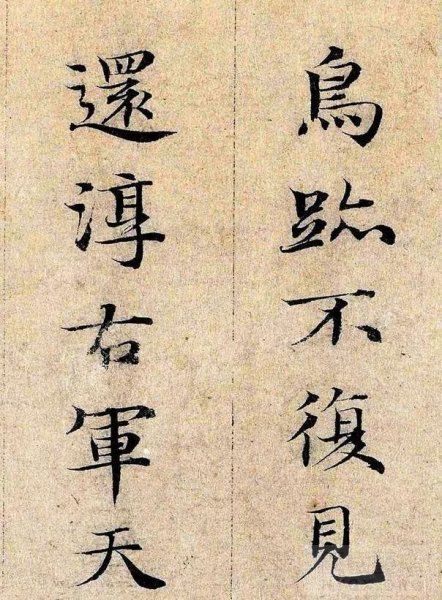 鳥跡不復見
還淳右軍天